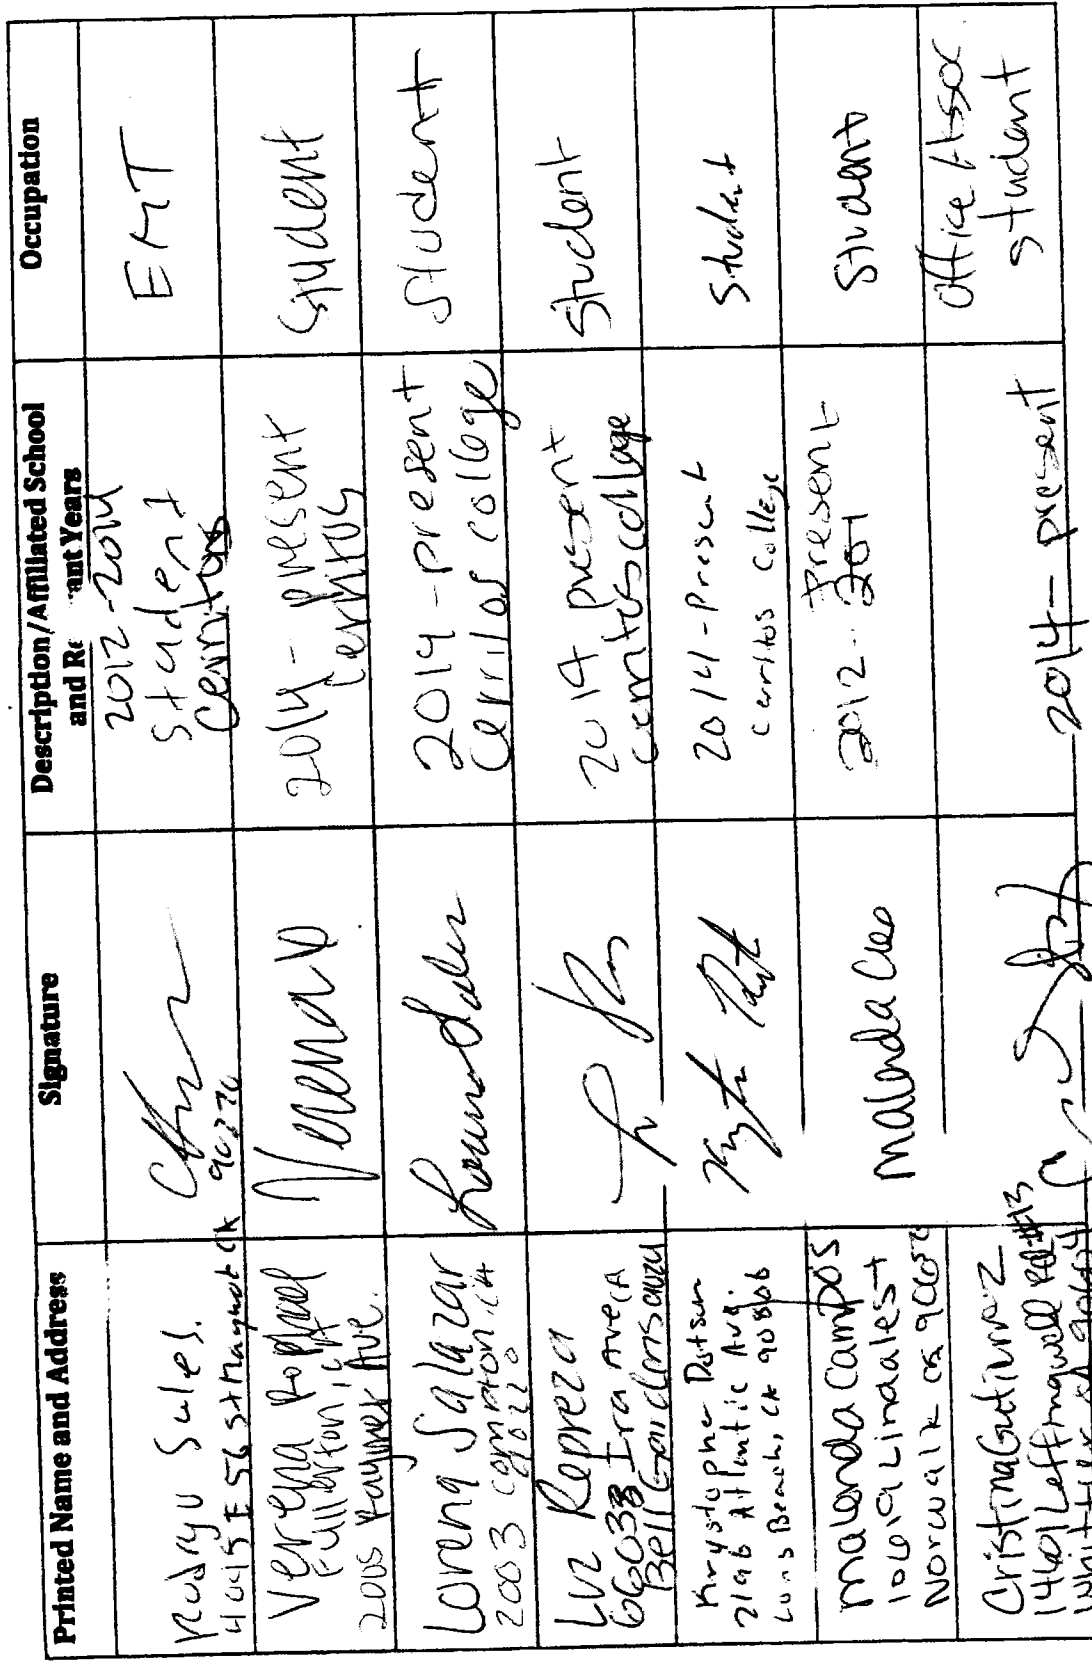 Printed Name and Address
Signature
Description/Affiliated School
and Re ant Years
Occupation
Sules.
4045 E 56 St Maywood CA 90270
2012-2014
student
Cerritos
EMT
Verena
Fullerton,
2005 Raymer Ave.
Verena
2014 - present
Cerritos
Student
Lorena Salazar
2003 compton, CA
90220
Lorena
2014-present
Cerritos college
Student
Luz Repreza
Ira Ave
Bell Gardens
2014 present
cerritos college
Student
Krystopher Dotson
2196 Atlantic Ave.
Long Beach, CA 90806
2014-Present
Cerritos College
Student
malenda Campos
Lindale st
Norwalk ca
malenda
Present
2012-201
Student
Cristina Gutierrez
14601 Leffingwell Rd #13
Whittier
2014-present
Office Assoc.
student